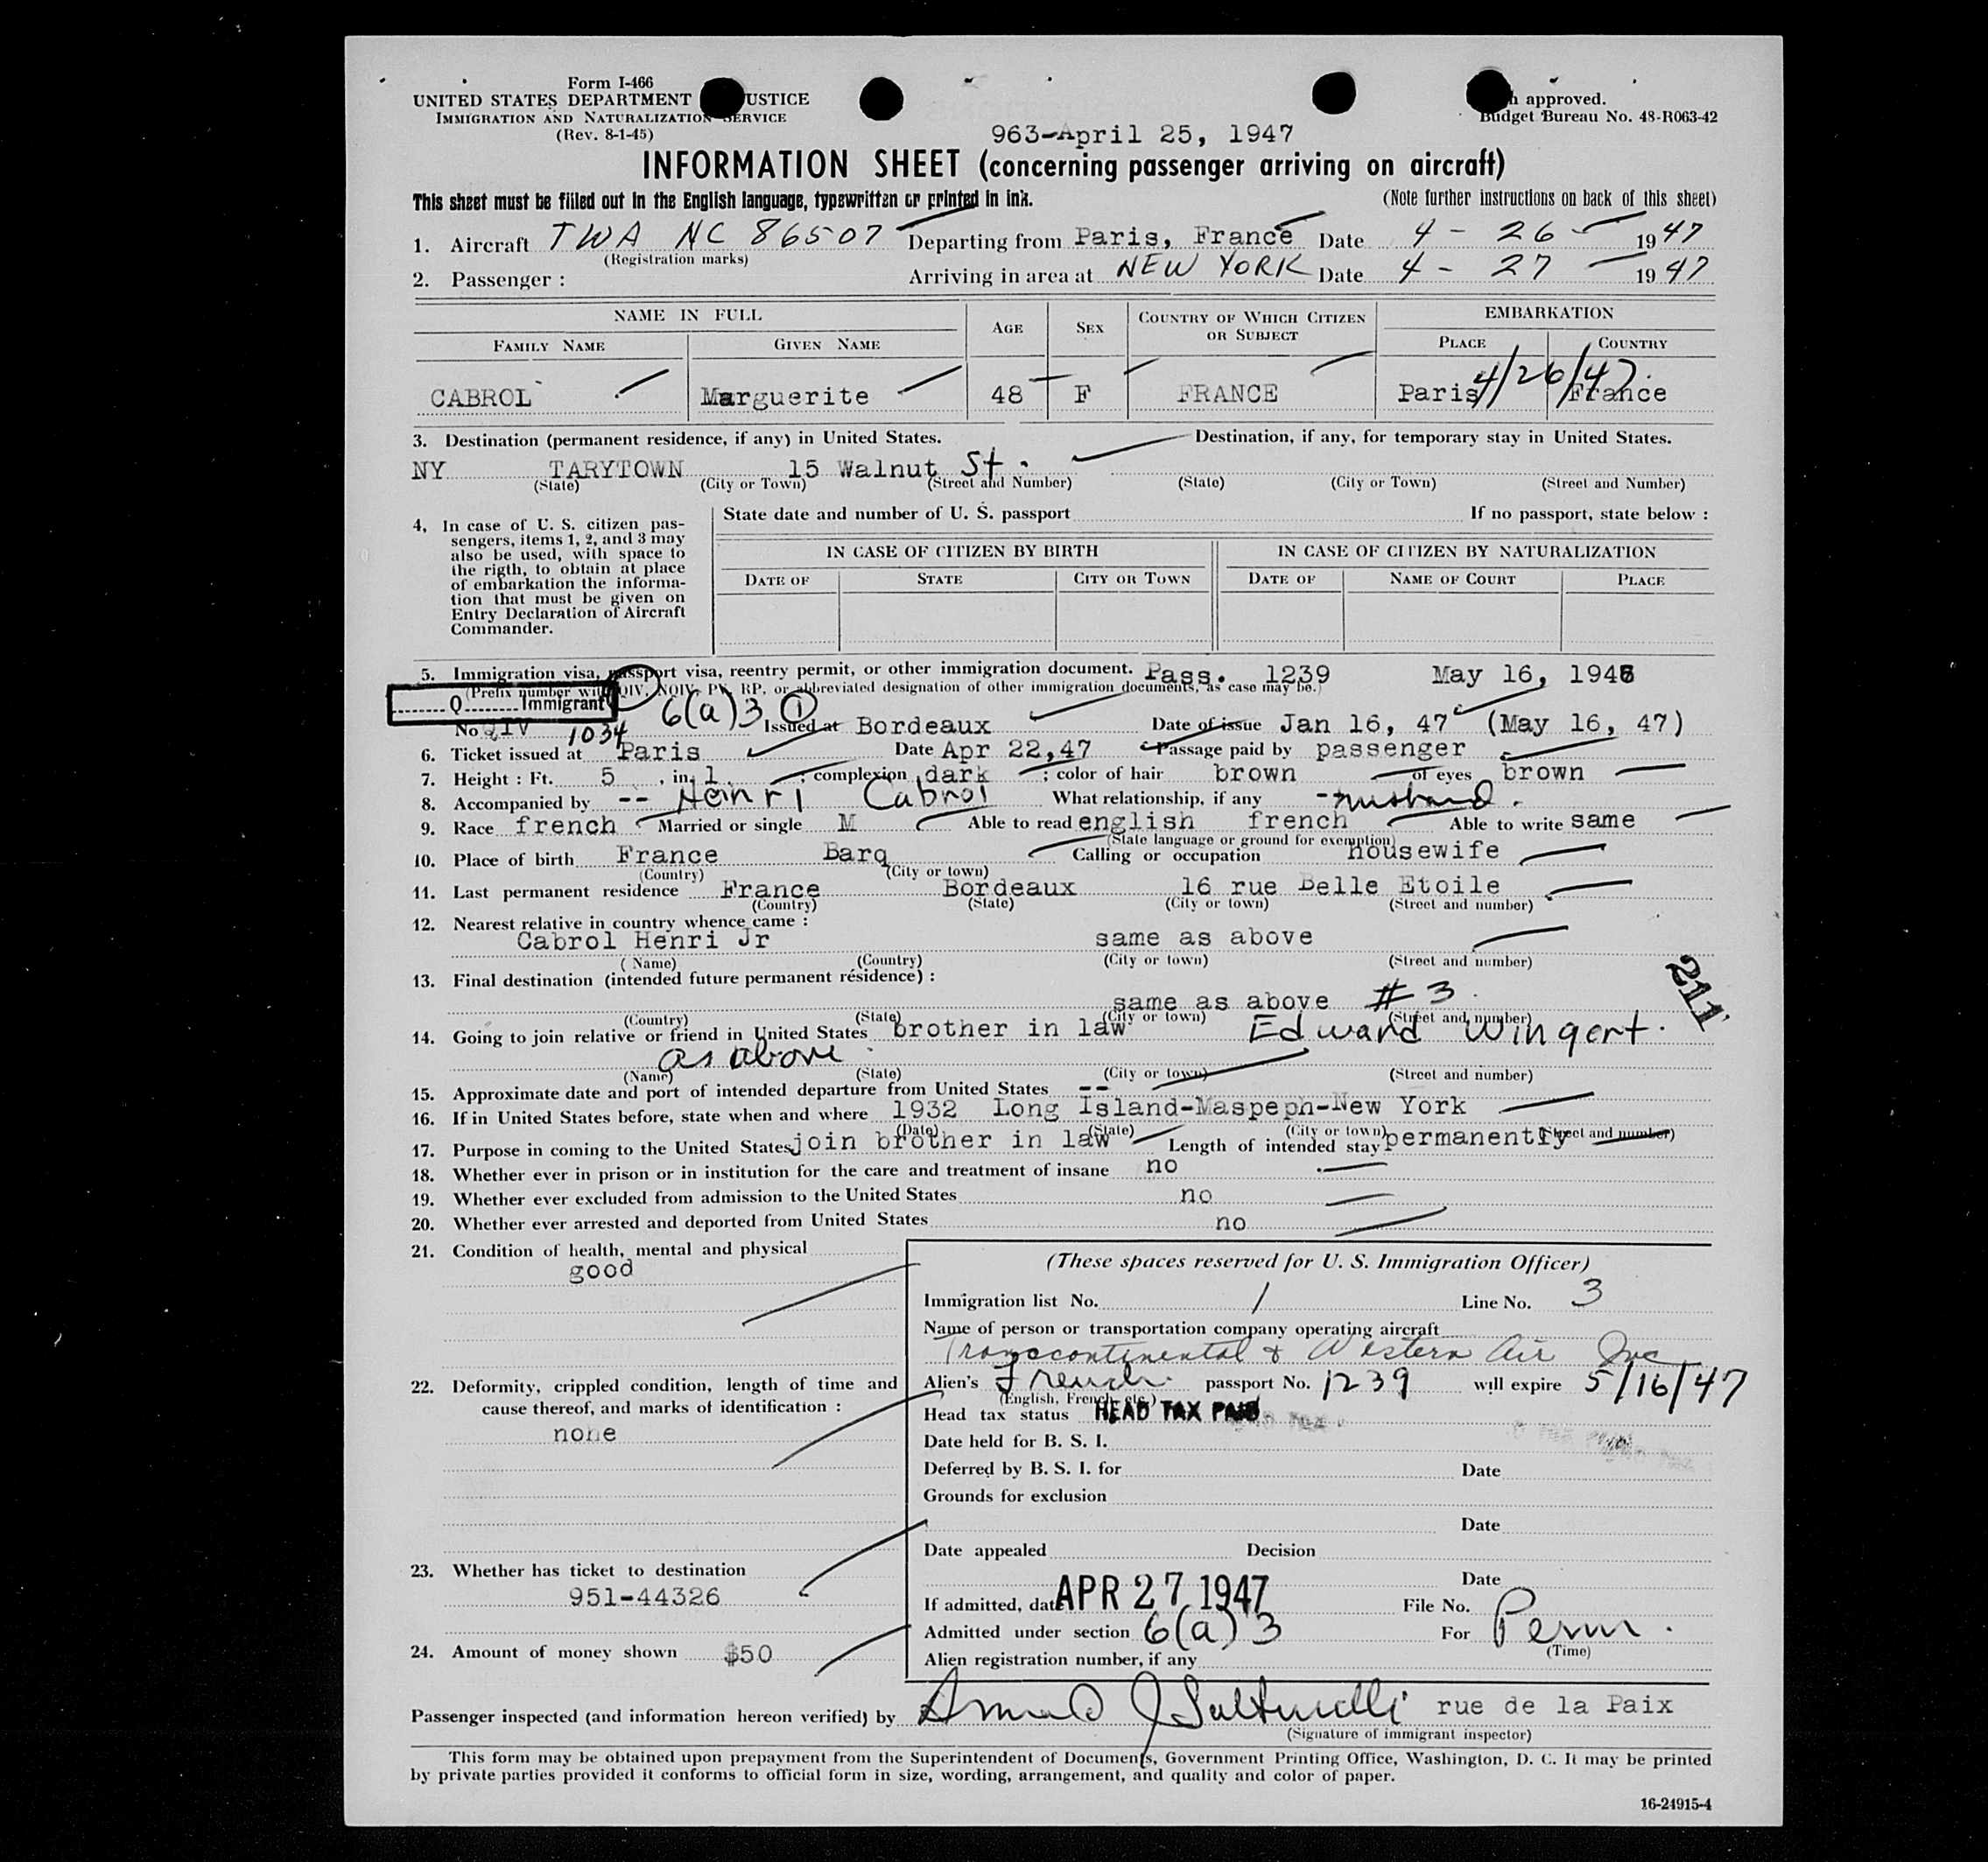 Form I-466
UNITED STATES DEPARTMENT USTICE
IMMIGRATION AND NATURALIZATION SERVICE
(Rev. 8-1-45)
approved.
Budget Bureau No. 48-R063-42
963-April 25, 1947
INFORMATION SHEET (concerning passenger arriving on aircraft)
This sheet must be filled out in the English language, typewritten or printed in ink. (Note further instructions on back of this sheet)
1. Aircraft TWA NC 86507 Departing from Paris, France Date 4 - 26 - 1947
(Registration marks)
2. Passenger : Arriving in area at NEW YORK Date 4 - 27 - 1947
NAME IN FULL AGE SEX COUNTRY OF WHICH CITIZEN OR SUBJECT EMBARKATION
FAMILY NAME GIVEN NAME PLACE COUNTRY
4/26/47.
CABROL Marguerite 48 F FRANCE Paris France
3. Destination (permanent residence, if any) in United States. Destination, if any, for temporary stay in United States.
NY TARYTOWN 15 Walnut St.
(State) (City or Town) (Street and Number) (State) (City or Town) (Street and Number)
4, In case of U. S. citizen pas-
sengers, items 1, 2, and 3 may
also be used, with space to
the rigth, to obtain at place
of embarkation the informa-
tion that must be given on
Entry Declaration of Aircraft
Commander.
State date and number of U. S. passport If no passport, state below :
IN CASE OF CITIZEN BY BIRTH IN CASE OF CITIZEN BY NATURALIZATION
DATE OF STATE CITY OR TOWN DATE OF NAME OF COURT PLACE
5. Immigration visa, passport visa, reentry permit, or other immigration document. Pass. 1239 May 16, 1946
(Prefix number with QIV, NQIV, PV, RP, or abbreviated designation of other immigration documents, as case may be.)
Q Immigrant 6(a)3 1
No QIV 1034 Issued at Bordeaux Date of issue Jan 16, 47 (May 16, 47)
6. Ticket issued at Paris Date Apr 22,47 Passage paid by passenger
7. Height : Ft. 5 , in. 1 ; complexion dark ; color of hair brown of eyes brown
8. Accompanied by -- Henri Cabrol What relationship, if any - husband.
9. Race french Married or single M Able to read english french Able to write same
(State language or ground for exemption)
10. Place of birth France Barq Calling or occupation housewife
(Country) (City or town)
11. Last permanent residence France Bordeaux 16 rue Belle Etoile
(Country) (State) (City or town) (Street and number)
12. Nearest relative in country whence came :
Cabrol Henri Jr same as above
(Name) (Country) (City or town) (Street and number)
13. Final destination (intended future permanent résidence) :
same as above # 3.
211
(Country) (State) (City or town) (Street and number)
14. Going to join relative or friend in United States brother in law Edward Wingert.
as above.
(Name) (State) (City or town) (Street and number)
15. Approximate date and port of intended departure from United States --
16. If in United States before, state when and where 1932 Long Island-Maspeph-New York
(Date) (State) (City or town) (Street and number)
17. Purpose in coming to the United States join brother in law Length of intended stay permanently
18. Whether ever in prison or in institution for the care and treatment of insane no
19. Whether ever excluded from admission to the United States no
20. Whether ever arrested and deported from United States no
21. Condition of health, mental and physical
good
22. Deformity, crippled condition, length of time and
cause thereof, and marks of identification :
none
23. Whether has ticket to destination
951-44326
24. Amount of money shown $50
(These spaces reserved for U. S. Immigration Officer)
Immigration list No. 1 Line No. 3
Name of person or transportation company operating aircraft
Transcontinental & Western Air Inc
Alien's French passport No. 1239 will expire 5/16/47
(English, French, etc.)
Head tax status HEAD TAX PAID
Date held for B. S. I.
Deferred by B. S. I. for Date
Grounds for exclusion
Date
Date appealed Decision
Date
If admitted, date APR 27 1947 File No.
Admitted under section 6(a)3 For Perm.
(Time)
Alien registration number, if any
Passenger inspected (and information hereon verified) by rue de la Paix
(Signature of immigrant inspector)
This form may be obtained upon prepayment from the Superintendent of Documents, Government Printing Office, Washington, D. C. It may be printed
by private parties provided it conforms to official form in size, wording, arrangement, and quality and color of paper.
16-24915-4